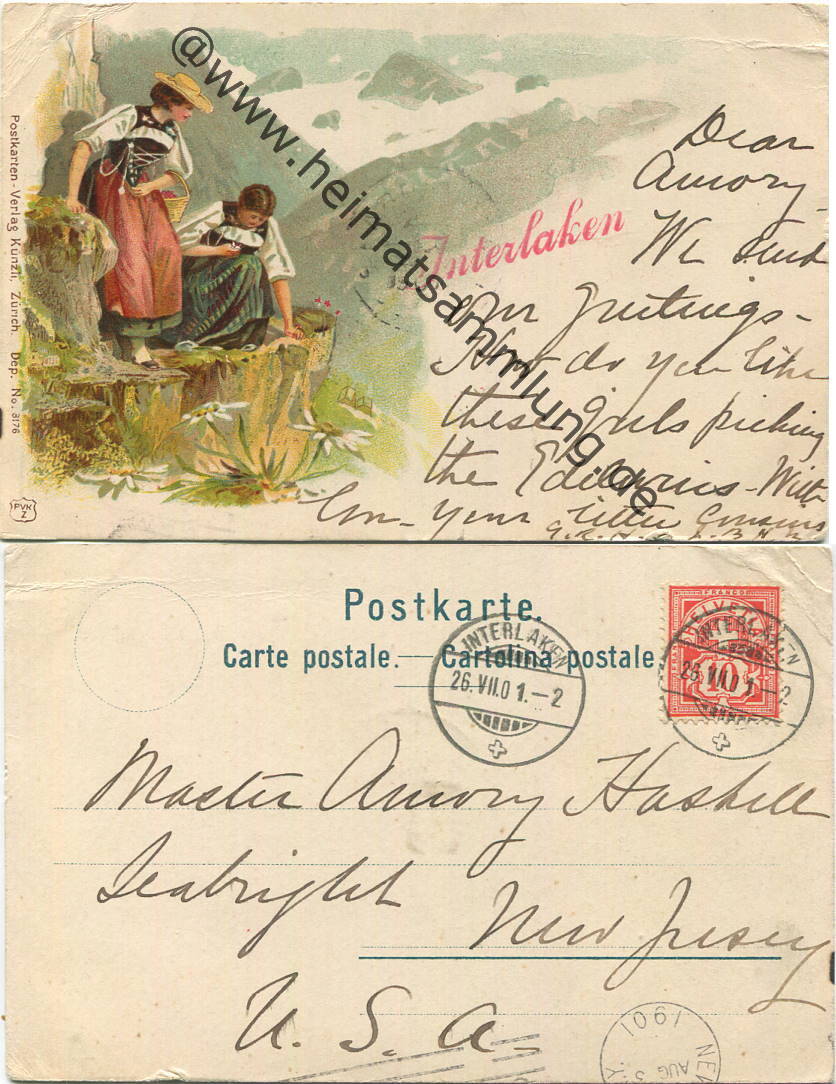 @www.heimatsammlung.de
Postkarten-Verlag Künzli, Zürich. Dep. No. 3176
PVK
Z
Interlaken
Dear
Amory-
We send
our greetings-
How do you like
these girls picking
the Edelweis-With
love- Your little Cousins
Postkarte.
Carte postale. — Cartolina postale.
FRANCO
HELVETIA
10
INTERLAKEN
26.VII.01.–2
INTERLAKEN
26.VII.01–2
Master Amory Haskell
Seabright
New Jersey
U. S. A-
1901
NEW
AUG 3
Y